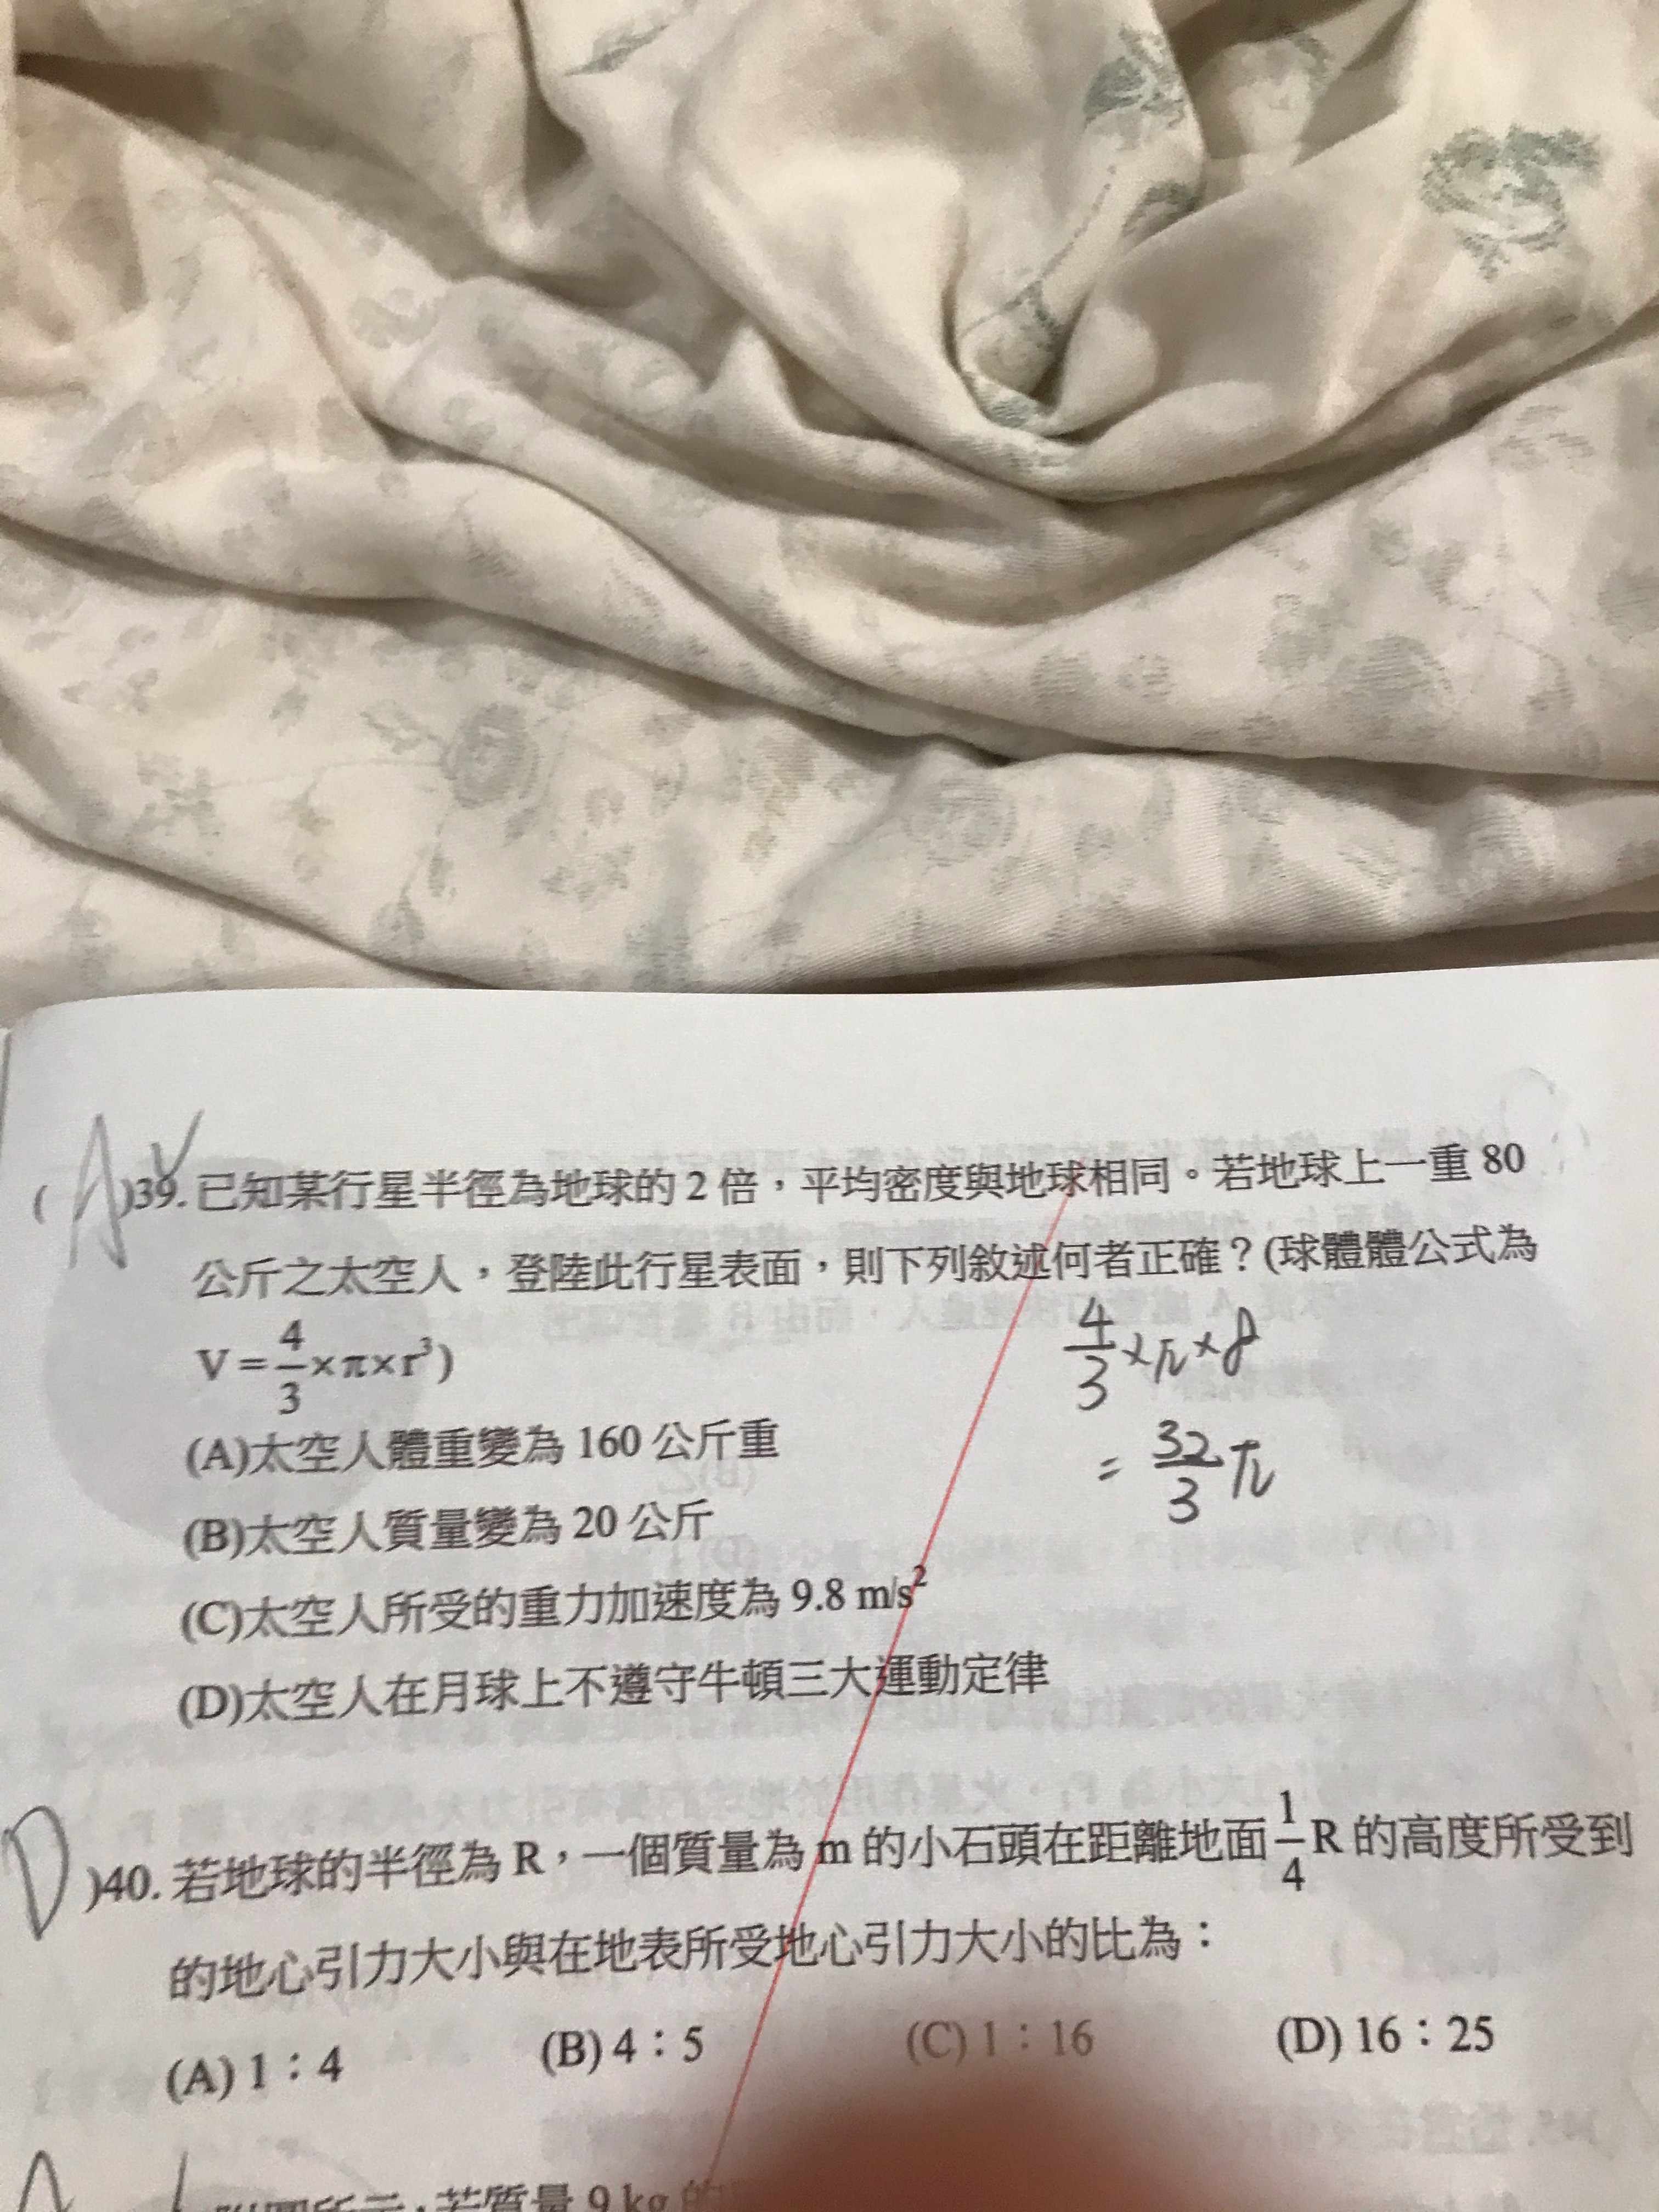 (A)39. 已知某行星半徑為地球的 2 倍，平均密度與地球相同。若地球上一重 80
公斤之太空人，登陸此行星表面，則下列敘述何者正確？(球體體公式為
V=4/3×π×r³)
4/3×π×8
(A)太空人體重變為 160 公斤重
= 32/3 π
(B)太空人質量變為 20 公斤
(C)太空人所受的重力加速度為 9.8 m/s²
(D)太空人在月球上不遵守牛頓三大運動定律
D)40. 若地球的半徑為 R，一個質量為 m 的小石頭在距離地面 1/4 R 的高度所受到
的地心引力大小與在地表所受地心引力大小的比為：
(A) 1：4 (B) 4：5 (C) 1：16 (D) 16：25
若質量 9 kg 的